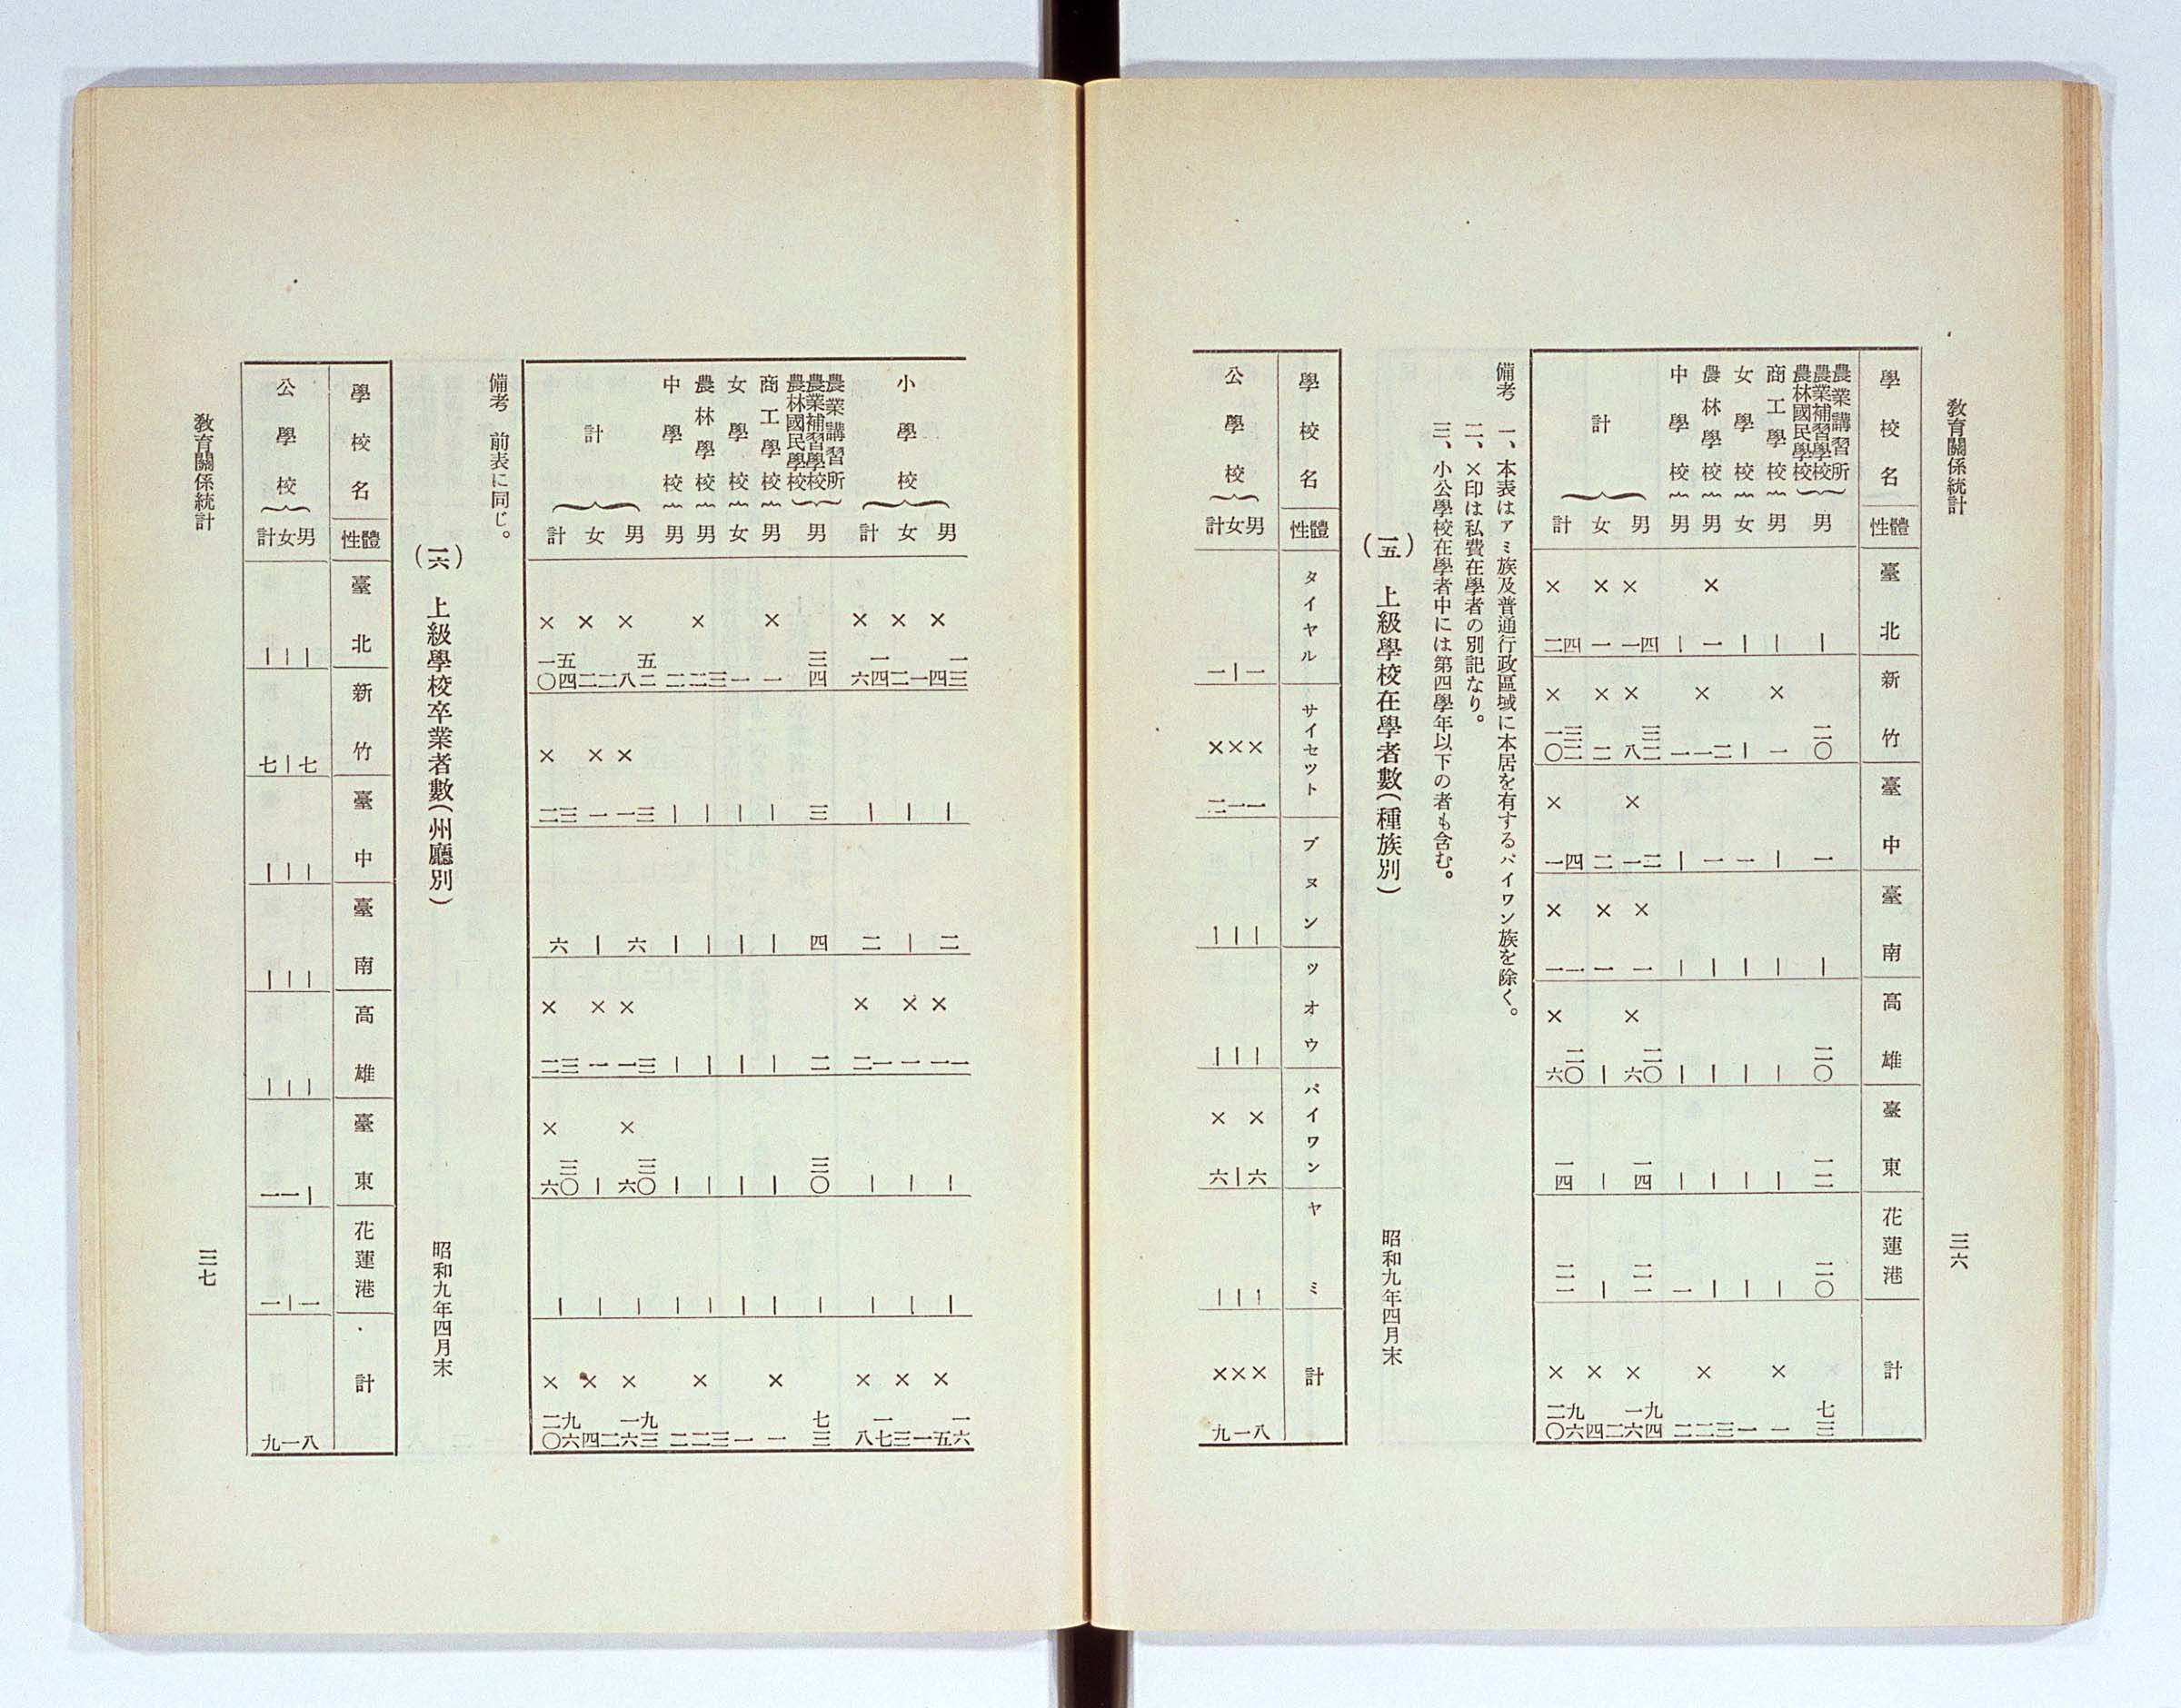 教育關係統計 三六
學校名 性體 臺北 新竹 臺中 臺南 高雄 臺東 花蓮港 計
農業講習所 農業補習學校 農林國民學校 男 | 二〇 一 | 二〇 一二 二〇 七三
商工學校 男 | ×一 | | | | | ×一
女學校 女 | | 一 | | | | 一
農林學校 男 ×一 ×一二 一 | | | | ×二三
中學校 男 | 一 | | | | 一 二
計 男 ×一四 ×八三二 ×一二 ×一 ×六二〇 一四 二一 ×一六九四
女 ×一 ×二 二 ×一 | | | ×四二
計 ×二四 ×一〇三二 ×一四 ×一一 ×六二〇 一四 二一 ×二〇九六
備考 一、本表はアミ族及普通行政區域に本居を有するパイワン族を除く。
二、×印は私費在學者の別記なり。
三、小公學校在學者中には第四學年以下の者も含む。
(一五) 上級學校在學者數(種族別) 昭和九年四月末
學校名 性體 タイヤル サイセツト ブヌン ツオウ パイワン ヤミ 計
公學校 男 一 ×一 | | ×六 | ×八
女 | ×一 | | | | ×一
計 一 ×二 | | ×六 | ×九
小學校 男 ×四一三 | 二 ×一一 | | ×五一六
女 ×二一 | | ×一 | | ×三一
計 ×六一四 | 二 ×二一 | | ×八一七
農業講習所 農業補習學校 農林國民學校 男 三四 三 四 二 三〇 | 七三
商工學校 男 ×一 | | | | | ×一
女學校 女 一 | | | | | 一
農林學校 男 ×二三 | | | | | ×二三
中學校 男 二 | | | | | 二
計 男 ×八五二 ×一三 六 ×一三 ×六三〇 | ×一六九三
女 ×二二 ×一 | ×一 | | ×四二
計 ×一〇五四 ×二三 六 ×二三 ×六三〇 | ×二〇九六
備考 前表に同じ。
(一六) 上級學校卒業者數(州廳別) 昭和九年四月末
學校名 性體 臺北 新竹 臺中 臺南 高雄 臺東 花蓮港 計
公學校 男 | 七 | | | | 一 八
女 | | | | | 一 | 一
計 | 七 | | | 一 一 九
教育關係統計 三七